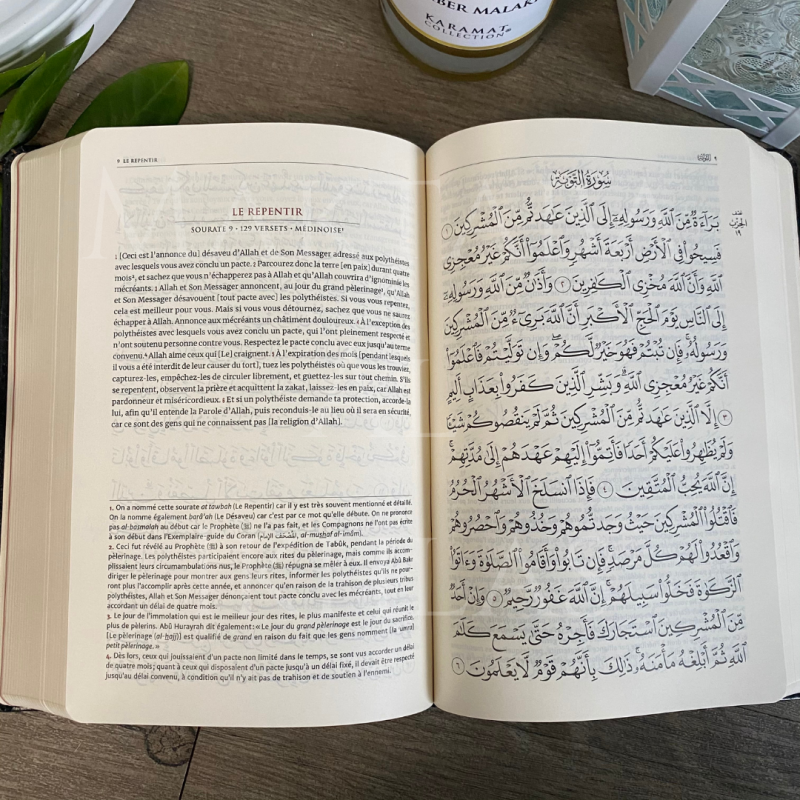 BER MALAKI
KARAMAT
COLLECTION®
9 LE REPENTIR
LE REPENTIR
SOURATE 9 • 129 VERSETS • MÉDINOISE¹
1 [Ceci est l'annonce du] désaveu d'Allah et de Son Messager adressé aux polythéistes
avec lesquels vous avez conclu un pacte. 2 Parcourez donc la terre [en paix] durant quatre
mois², et sachez que vous n'échapperez pas à Allah et qu'Allah couvrira d'ignominie les
mécréants. 3 Allah et Son Messager annoncent, au jour du grand pèlerinage³, qu'Allah
et Son Messager désavouent [tout pacte avec] les polythéistes. Si vous vous repentez,
cela est meilleur pour vous. Mais si vous vous détournez, sachez que vous ne saurez
échapper à Allah. Annonce aux mécréants un châtiment douloureux. 4 À l'exception des
polythéistes avec lesquels vous avez conclu un pacte, qui l'ont pleinement respecté et
n'ont soutenu personne contre vous. Respectez le pacte conclu avec eux jusqu'au terme
convenu.⁴ Allah aime ceux qui [Le] craignent. 5 À l'expiration des mois [pendant lesquels
il vous a été interdit de leur causer du tort], tuez les polythéistes où que vous les trouviez,
capturez-les, empêchez-les de circuler librement, et guettez-les sur tout chemin. S'ils
se repentent, observent la prière et acquittent la zakat, laissez-les en paix, car Allah est
pardonneur et miséricordieux. 6 Et si un polythéiste demande ta protection, accorde-la
lui, afin qu'il entende la Parole d'Allah, puis reconduis-le au lieu où il sera en sécurité,
car ce sont des gens qui ne connaissent pas [la religion d'Allah].
1. On a nommé cette sourate at tawbah (Le Repentir) car il y est très souvent mentionné et détaillé.
On la nomme également barâ'ah (Le Désaveu) car c'est par ce mot qu'elle débute. On ne prononce
pas al-basmalah au début car le Prophète (ﷺ) ne l'a pas fait, et les Compagnons ne l'ont pas écrite
à son début dans l'Exemplaire-guide du Coran (المصحف الإمام, al-mushaf al-imâm).
2. Ceci fut révélé au Prophète (ﷺ) à son retour de l'expédition de Tabûk, pendant la période du
pèlerinage. Les polythéistes participaient encore aux rites du pèlerinage, mais comme ils accom-
plissaient leurs circumambulations nus, le Prophète (ﷺ) répugna se mêler à eux. Il envoya Abû Bakr
diriger le pèlerinage pour montrer aux gens leurs rites, informer les polythéistes qu'ils ne pour-
ront plus l'accomplir après cette année, et annoncer qu'en raison de la trahison de plusieurs tribus
polythéistes, Allah et Son Messager dénonçaient tout pacte avec les mécréants, tout en leur
accordant un délai de quatre mois.
3. Le jour de l'immolation qui est le meilleur jour des rites, le plus manifeste et celui qui réunit le
plus de pèlerins. Abû Hurayrah dit également : « Le jour du grand pèlerinage est le jour du sacrifice,
[Le pèlerinage (al-hajj)] est qualifié de grand en raison du fait que les gens nomment (la 'umra)
petit pèlerinage. »
4. Dès lors, ceux qui jouissaient d'un pacte non limité dans le temps, se sont vus accorder un délai
de quatre mois; quant à ceux qui disposaient d'un pacte jusqu'à un délai fixé, il devait être respecté
jusqu'au délai convenu, à condition qu'il n'y ait pas de trahison et de soutien à l'ennemi.
التوبة ٩
سُورَةُ التَّوْبَةِ
الحزب
١٩
بَرَآءَةٌ مِّنَ ٱللَّهِ وَرَسُولِهِۦٓ إِلَى ٱلَّذِينَ عَٰهَدتُّم مِّنَ ٱلْمُشْرِكِينَ ١
فَسِيحُوا۟ فِى ٱلْأَرْضِ أَرْبَعَةَ أَشْهُرٍ وَٱعْلَمُوٓا۟ أَنَّكُمْ غَيْرُ مُعْجِزِى
ٱللَّهِ وَأَنَّ ٱللَّهَ مُخْزِى ٱلْكَٰفِرِينَ ٢ وَأَذَٰنٌ مِّنَ ٱللَّهِ وَرَسُولِهِۦٓ
إِلَى ٱلنَّاسِ يَوْمَ ٱلْحَجِّ ٱلْأَكْبَرِ أَنَّ ٱللَّهَ بَرِىٓءٌ مِّنَ ٱلْمُشْرِكِينَ
وَرَسُولُهُۥ فَإِن تُبْتُمْ فَهُوَ خَيْرٌ لَّكُمْ وَإِن تَوَلَّيْتُمْ فَٱعْلَمُوٓا۟
أَنَّكُمْ غَيْرُ مُعْجِزِى ٱللَّهِ وَبَشِّرِ ٱلَّذِينَ كَفَرُوا۟ بِعَذَابٍ أَلِيمٍ
٣ إِلَّا ٱلَّذِينَ عَٰهَدتُّم مِّنَ ٱلْمُشْرِكِينَ ثُمَّ لَمْ يَنقُصُوكُمْ شَيْـًٔا
وَلَمْ يُظَٰهِرُوا۟ عَلَيْكُمْ أَحَدًا فَأَتِمُّوٓا۟ إِلَيْهِمْ عَهْدَهُمْ إِلَىٰ مُدَّتِهِمْ
إِنَّ ٱللَّهَ يُحِبُّ ٱلْمُتَّقِينَ ٤ فَإِذَا ٱنسَلَخَ ٱلْأَشْهُرُ ٱلْحُرُمُ
فَٱقْتُلُوا۟ ٱلْمُشْرِكِينَ حَيْثُ وَجَدتُّمُوهُمْ وَخُذُوهُمْ وَٱحْصُرُوهُمْ
وَٱقْعُدُوا۟ لَهُمْ كُلَّ مَرْصَدٍ فَإِن تَابُوا۟ وَأَقَامُوا۟ ٱلصَّلَوٰةَ وَءَاتَوُا۟
ٱلزَّكَوٰةَ فَخَلُّوا۟ سَبِيلَهُمْ إِنَّ ٱللَّهَ غَفُورٌ رَّحِيمٌ ٥ وَإِنْ أَحَدٌ
مِّنَ ٱلْمُشْرِكِينَ ٱسْتَجَارَكَ فَأَجِرْهُ حَتَّىٰ يَسْمَعَ كَلَٰمَ
ٱللَّهِ ثُمَّ أَبْلِغْهُ مَأْمَنَهُۥ ذَٰلِكَ بِأَنَّهُمْ قَوْمٌ لَّا يَعْلَمُونَ ٦